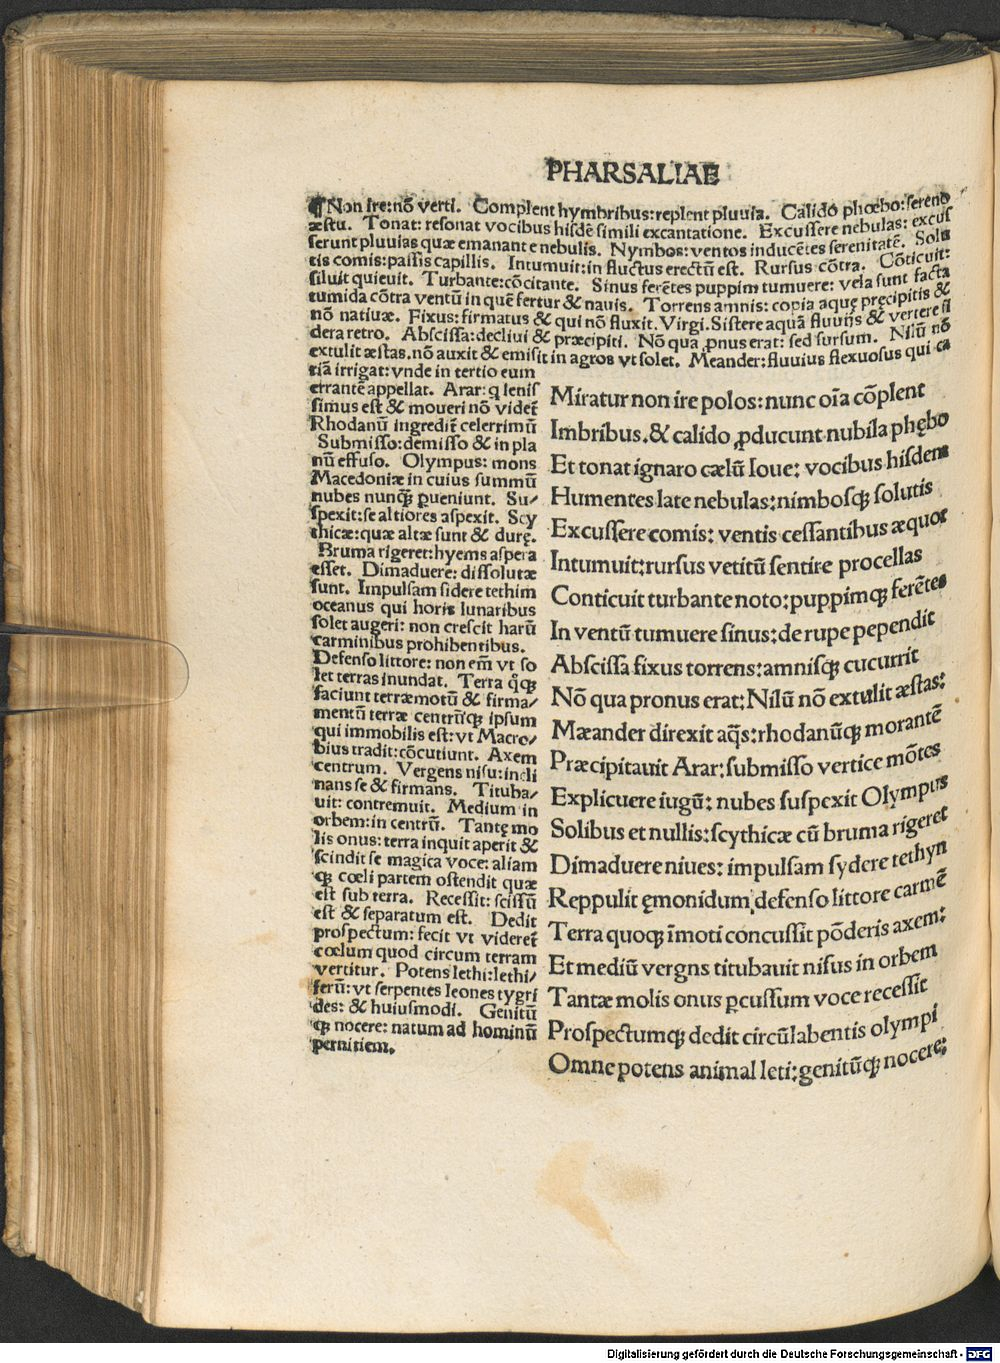 PHARSALIAE
¶ Non ire: nō verti. Complent hymbribus: replent pluuia. Calido phœbo: sereno
æstu. Tonat: resonat vocibus hisdē simili excantatione. Excussere nebulas: excus
serunt pluuias quæ emanant e nebulis. Nymbos: ventos inducētes serenitatē. Solu
tis comis: passis capillis. Intumuit: in fluctus erectū est. Rursus cōtra. Cōticuit:
siluit quieuit. Turbante: cōcitante. Sinus ferētes puppim tumuere: vela sunt facta
tumida cōtra ventū in quē fertur & nauis. Torrens amnis: copia aquę precipitis &
nō natiuæ. Fixus: firmatus & qui nō fluxit. Virgi. Sistere aquā fluuijs & vertere si
dera retro. Abscissa: decliui & præcipiti. Nō qua ꝓnus erat: sed sursum. Nilū nō
extulit æstas. nō auxit & emisit in agros vt solet. Meander: fluuius flexuosus qui ca
riā irrigat: vnde in tertio eum
errantē appellat. Arar: q lenis
simus est & moueri nō videt̄
Rhodanū ingredit̄ celerrimū
Submisso: demisso & in pla
nū effuso. Olympus: mons
Macedoniæ in cuius summū
nubes nunq̄ꝫ ꝑueniunt. Su/
spexit: se altiores aspexit. Scy
thicæ: quæ altæ sunt & durę.
Bruma rigeret: hyems aspera
esset. Dimaduere: dissolutæ
sunt. Impulsam sidere tethim
oceanus qui horis lunaribus
solet augeri: non crescit harū
carminibus prohibentibus.
Defenso littore: non em̄ vt so
let terras inundat. Terra q̊qꝫ
faciunt terræmotū & firma/
mentū terræ centrūqꝫ ipsum
qui immobilis est: vt Macro/
bius tradit: cōcutiunt. Axem
centrum. Vergens nisu: incli
nans se & firmans. Tituba/
uit: contremuit. Medium in
orbem: in centrū. Tantę mo
lis onus: terra inquit aperit &
scindit se magica voce: aliam
qꝫ cœli partem ostendit quæ
est sub terra. Recessit: scissū
est & separatum est. Dedit
prospectum: fecit vt videret̄
cœlum quod circum terram
vertitur. Potens lethi: lethi/
ferū: vt serpentes leones tygri
des: & huiusmodi. Genitū
qꝫ nocere: natum ad hominū
pernitiem.
Miratur non ire polos: nunc oīa cōplent
Imbribus. & calido ꝓducunt nubila phębo
Et tonat ignaro cælū Ioue: vocibus hisdem
Humentes late nebulas: nimbosqꝫ solutis
Excussere comis: ventis cessantibus æquor
Intumuit: rursus vetitū sentire procellas
Conticuit turbante noto: puppimqꝫ ferētes
In ventū tumuere sinus: de rupe pependit
Abscissa fixus torrens: amnisqꝫ cucurrit
Nō qua pronus erat: Nilū nō extulit æstas:
Mæander direxit aq̄s: rhodanūqꝫ morantē
Præcipitauit Arar: submisso vertice mōtes
Explicuere iugū: nubes suspexit Olympus
Solibus et nullis: scythicæ cū bruma rigeret
Dimaduere niues: impulsam sydere tethyn
Reppulit ęmonidum, defenso littore carmē
Terra quoqꝫ īmoti concussit pōderis axem:
Et mediū vergns titubauit nisus in orbem
Tantæ molis onus ꝑcussum voce recessit
Prospectumqꝫ dedit circūlabentis olympi
Omne potens animal leti: genitūqꝫ nocere:
Digitalisierung gefördert durch die Deutsche Forschungsgemeinschaft - DFG